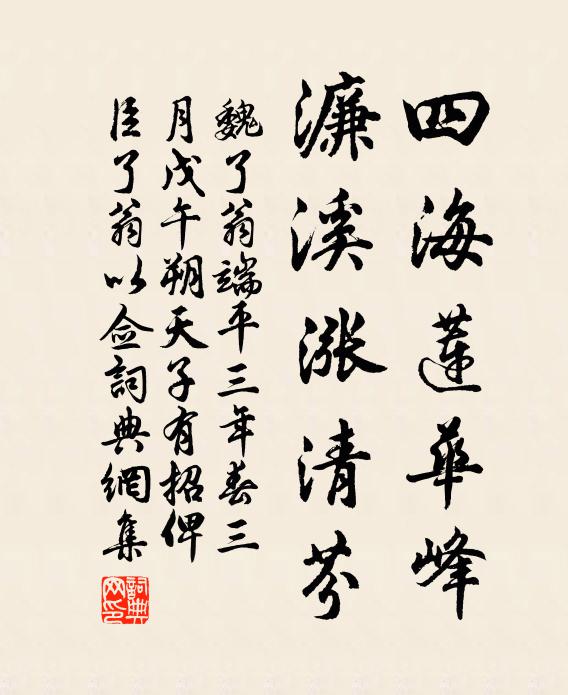 四海蓮華峰
濂溪漲清芬
魏了翁端平三年春三
月戊午朔天子有招俾
臣了翁以僉詞典網集
詞典網印